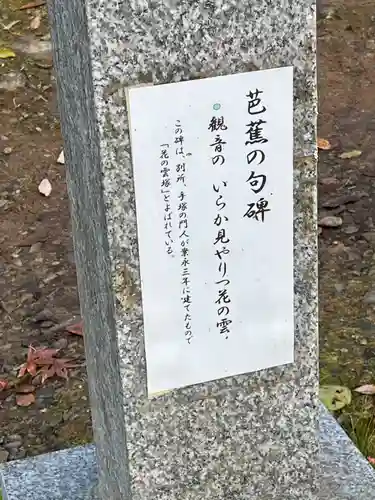 芭蕉の句碑
観音の いらか見やりつ花の雲。
この碑は、別所、手塚の門人が嘉永三年に建てたもので
「花の雲塚」とよばれている。